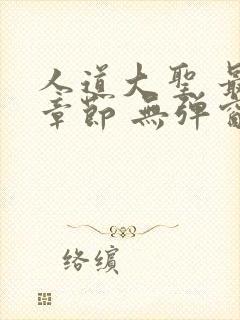 人道大聖 最
章節 無弹窗
络缤